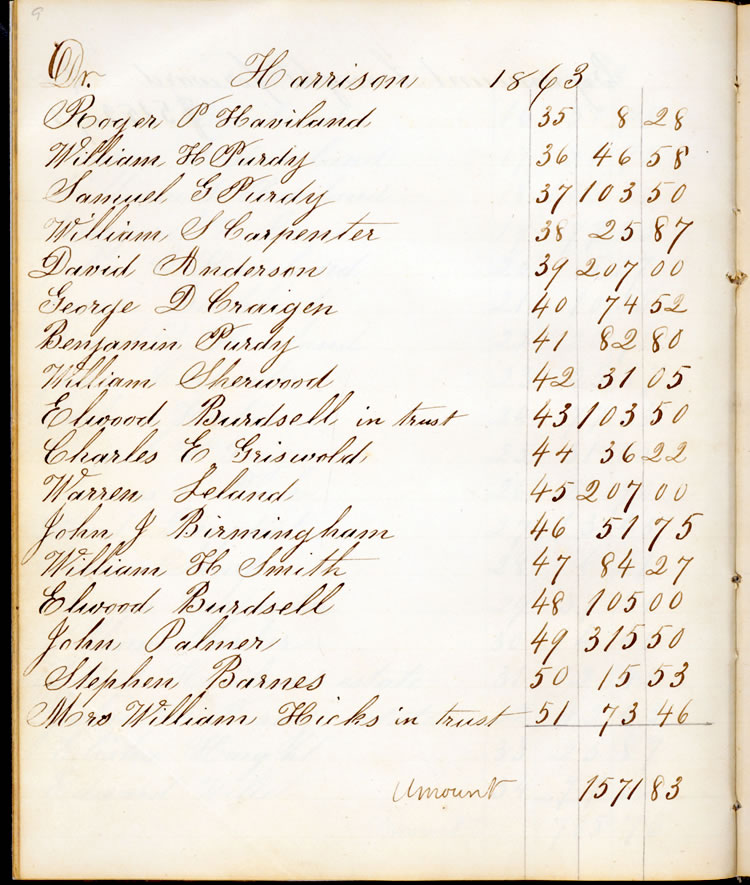 9
Dr. Harrison 1863
Roger P Haviland 35 8 28
William H Purdy 36 46 58
Samuel G Purdy 37 103 50
William S Carpenter 38 25 87
David Anderson 39 207 00
George D Craigen 40 74 52
Benjamin Purdy 41 82 80
William Sherwood 42 31 05
Elwood Burdsell in trust 43 103 50
Charles E Griswold 44 36 22
Warren Leland 45 207 00
John J Birmingham 46 51 75
William H Smith 47 84 27
Elwood Burdsell 48 105 00
John Palmer 49 315 50
Stephen Barnes 50 15 53
Mrs William Hicks in trust 51 73 46
Amount 1571 83